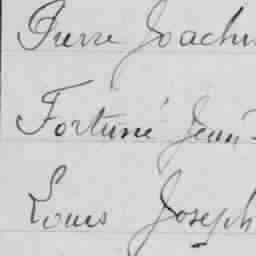 Pierre Joachi
Fortuné Jean-
Louis Joseph